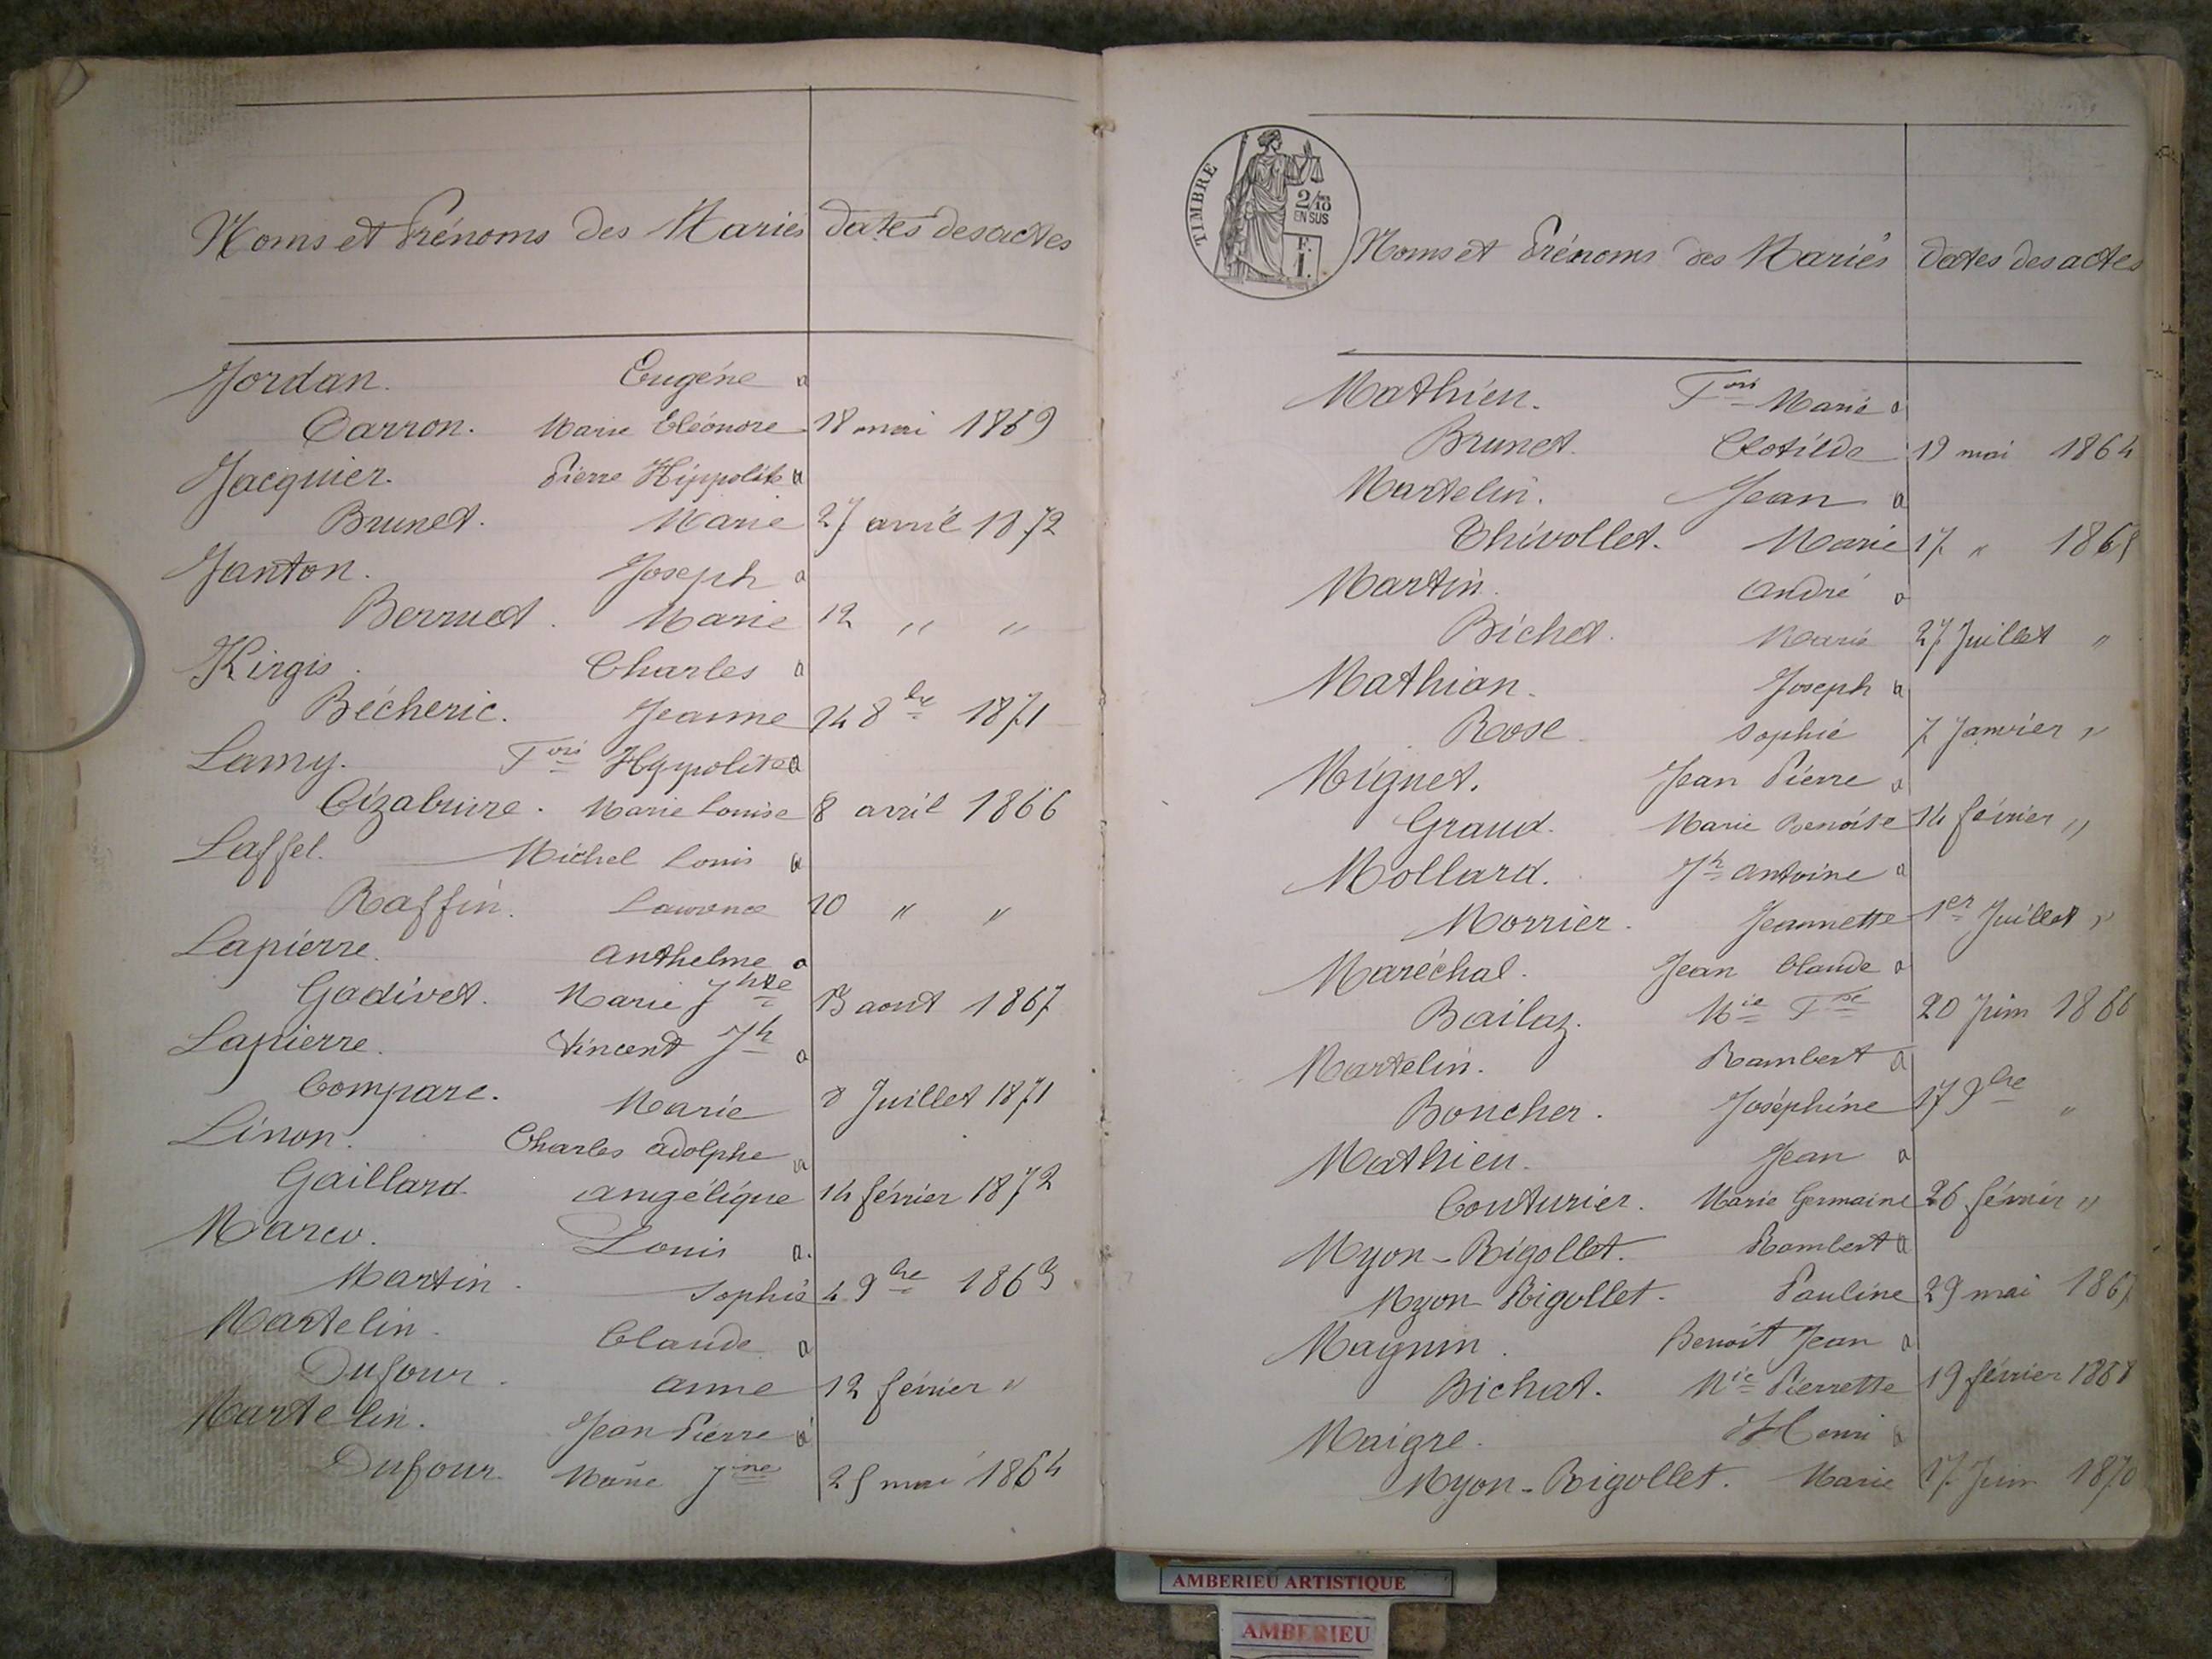 Noms et Prénoms des Mariés dates des actes
Jordan. Eugéne a
Carron. Marie Eléonore 18 mai 1869
Jacquier. Pierre Hippolite a
Brunet. Marie 27 avril 1872
Janton. Joseph a
Berruet. Marie 12 " "
Kirgis. Charles a
Bécheric. Jeanne 14 8bre 1871
Lamy. Fois Hyppolite a
Cizabuire. Marie Louise 8 avril 1866
Laffel. Michel Louis a
Raffin. Laurence 10 " "
Lapierre. Anthelme a
Gadivet. Marie Jhne 13 aout 1867
Lapierre. Vincent Jh a
Compare. Marie 8 Juillet 1871
Linon. Charles adolphe a
Gaillard angélique 14 février 1872
Marcu. Louis a.
Martin. Sophie 4 9bre 1863
Martelin. Claude a
Dufour. anne 12 février "
Martelin. Jean Pierre a
Dufour Marie Jine 25 mai 1864
TIMBRE
2/10
EN SUS
F.
1.
Noms et Prénoms des Mariés dates des actes
Mathieu. Fois Marie a
Brunet. Clotilde 19 mai 1864
Martelin. Jean a
Thivollet. Marie 17 " 1865
Martin. André a
Bichet. Marie 27 Juillet "
Mathian. Joseph a
Rose Sophie 7 Janvier "
Mignet. Jean Pierre a
Graud. Marie Benoîte 14 février "
Mollard. Jh antoine a
Morrier. Jeannette 1er Juillet "
Maréchal. Jean Claude a
Bailaz. Mie Fse 20 Juin 1866
Martelin. Rambert a
Boucher. Joséphine 17 9bre "
Mathieu. Jean a
Couturier. Marie Germaine 26 février "
Myon-Bigollet. Rambert a
Myon Bigollet. Pauline 29 mai 1867
Magnin. Benoît Jean a
Bichat. Mie Pierrette 19 février 1868
Maigre. Henri a
Myon-Bigollet. Marie 17 Juin 1870
AMBERIEU ARTISTIQUE
AMBERIEU